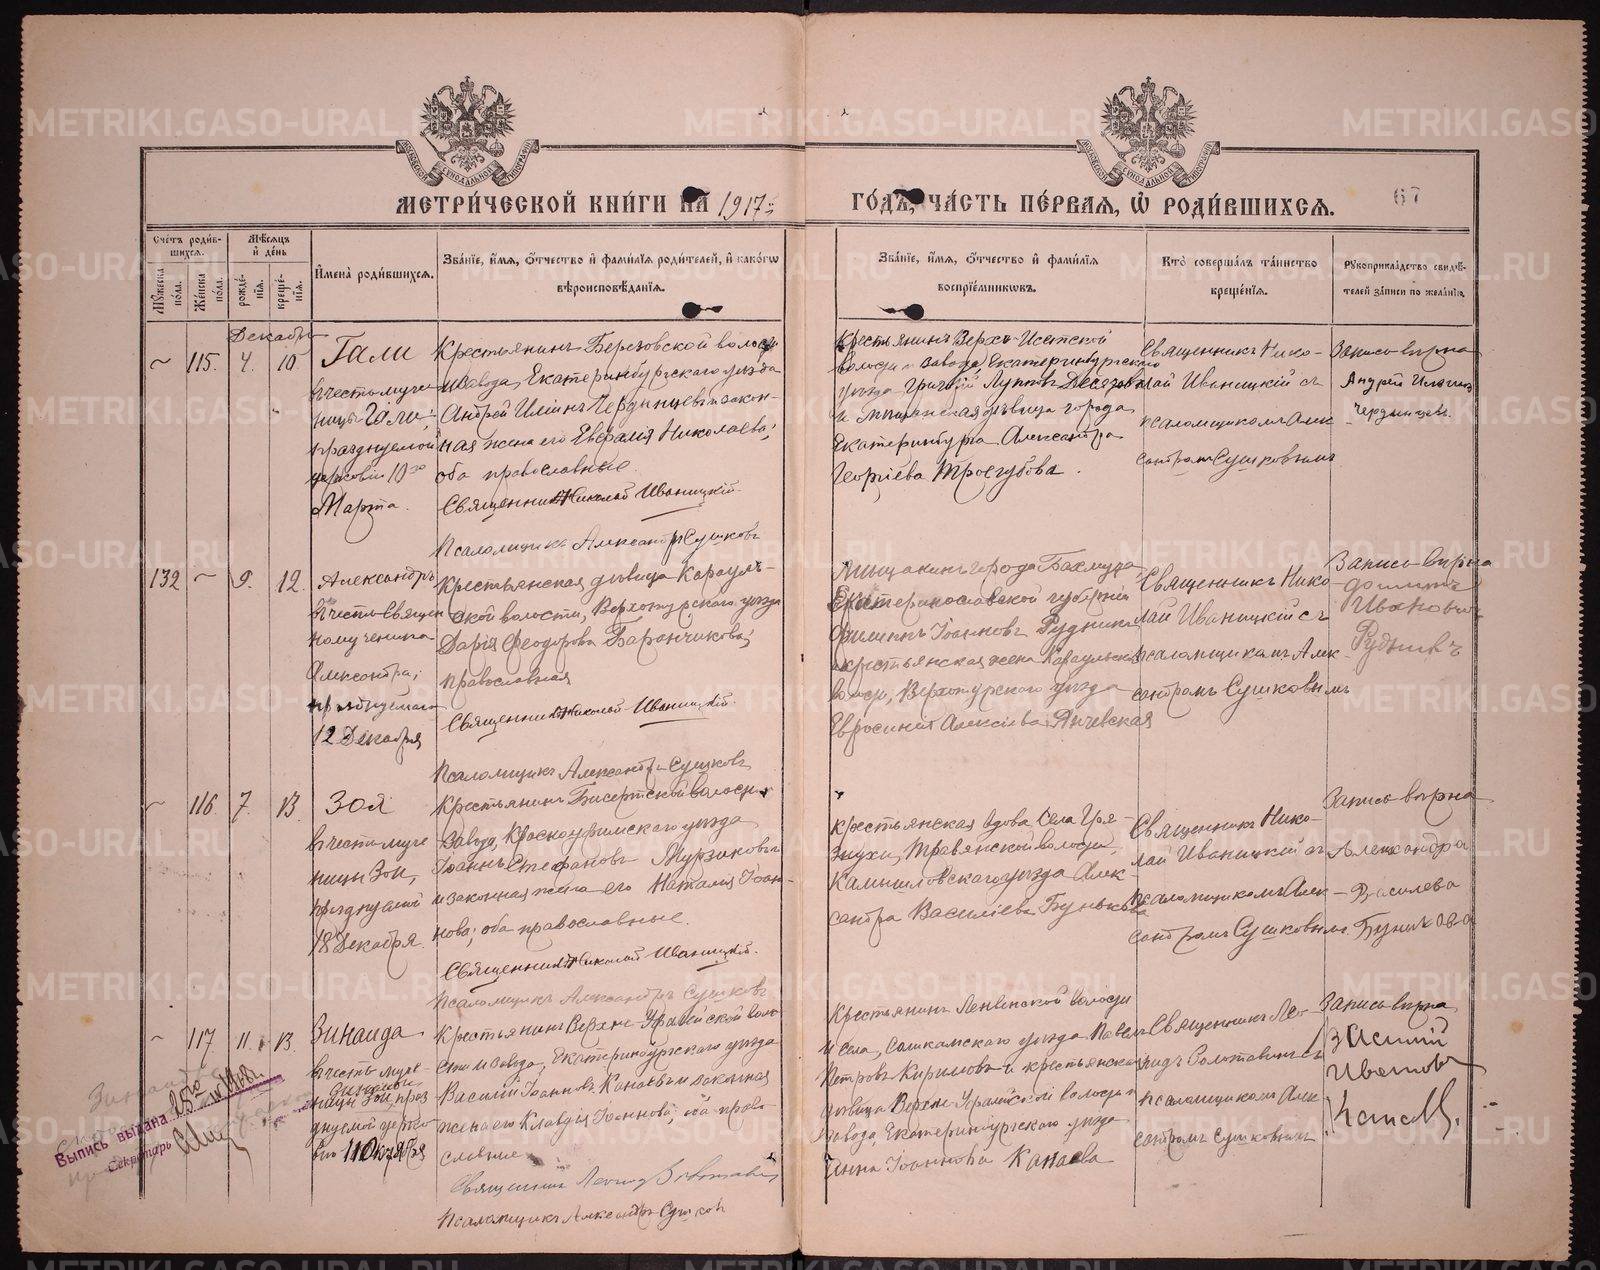 МЕТРИ́ЧЕСКОЙ КНИ́ГИ НА 1917 г.
ГО́ДЪ, ЧА́СТЬ ПЕ́РВАЯ, Ѡ РОДИ́ВШИХСЯ.
67
Сче́тъ роди́в-
шихся.
Му́жеска по́ла.
Же́нска по́ла.
Мѣ́сяцъ и де́нь
рожде́нїя.
креще́нїя.
И҆мена̀ роди́вшихся.
Зва́нїе, и҆́мя, ѻ҆́тчество и҆ фамѝлїя роди́телей, и҆ како́гѡ
вѣроисповѣ́данїя.
Зва́нїе, и҆́мя, ѻ҆́тчество и҆ фами́лїя
воспрїе́мникѡвъ.
Кто̀ соверша́лъ та́инство
креще́нїя.
Рꙋкоприкла́дство свидѣ́-
телей за́писи по жела́нїю.
Декабрь
~ 115. 4. 10
Гали
въ честь муче
ницы Гали,
празднуемой
церковью 10го
Марта.
Крестьянинъ Березовской волости
и завода, Екатеринбургскаго уѣзда
Андрей Илїинъ Чердынцевъ и закон-
ная жена его Евфалія Николаева;
оба православные.
Священникъ Николай Иваницкій.
Псаломщикъ Александръ Сушковъ
Крестьянинъ Верхъ-Исетской
волости и завода, Екатеринбургскаго
уѣзда Григорій
и мѣщанская дѣвица города
Екатеринбурга Александра
Георгіева Трегубова.
Священникъ Нико-
лай Иваницкій съ
псаломщикомъ Алек
сандромъ Сушковымъ
Запись вѣрна
Андрей Ильичъ
Чердынцевъ.
132 ~ 9. 12.
Александръ
въ честь священ
номученика
Александра,
празднуемаго
12 Декабря
Крестьянская дѣвица Карауль-
ской волости, Верхотурскаго уѣзда
Дарія Феодорова Баранчикова;
православная
Священникъ Николай Иваницкій.
Псаломщикъ Александръ Сушковъ
Мѣщанинъ города Бахмута
Екатеринославской губерніи
Филиппъ Іоанновъ
и крестьянская жена Караульской
волости, Верхотурскаго уѣзда
Евросинія Алексіева Янчевская
Священникъ Нико
лай Иваницкій съ
псаломщикомъ Алек-
сандромъ Сушковымъ
Запись вѣрна
Филипъ
Ивановъ
~ 116. 7. 13.
Зоя
въ честь муче
ницы Зои,
празднуемой
18 Декабря.
Крестьянинъ Бисертской волости
завода, Красноуфимскаго уѣзда
Іоаннъ Стефановъ Мурзиковъ
и законная жена его Наталія Іоан-
нова; оба православные.
Священникъ Николай Иваницкій.
Псаломщикъ Александръ Сушковъ
Крестьянская вдова села Гря-
знухи, Травянской волости,
Камышловскаго уѣзда Алек-
сандра Василіева Бунькова
Священникъ Нико-
лай Иваницкій съ
псаломщикомъ Алек-
сандромъ Сушковымъ
Запись вѣрна
Александра
Василева
Бунькова
~ 117. 11. 13.
Зинаида
въ честь муче-
Зинаиды
ницы Зои, праз
днуемой церко
вью 11 Октября
Крестьянинъ Верхне-Уфалейской воло-
сти и завода, Екатеринбургскаго уѣзда
Василій Іоанновъ Канаевъ и законная
жена его Клавдія Іоаннова; оба право-
славные
Псаломщикъ Александръ Сушков
Крестьянинъ Ленвенской волости
и села, Соликамскаго уѣзда Павелъ
Петровъ Кириловъ и крестьянская
дѣвица Верхне-Уфалейской волости
завода, Екатеринбургскаго уѣзда
Анна Іоаннова Канаева
Священникъ Лео-
нидъ съ
псаломщикомъ Алек
сандромъ Сушковымъ
Запись вѣрна
Выпись выдана 25го
Секретарь
METRIKI.GASO-URAL.RU